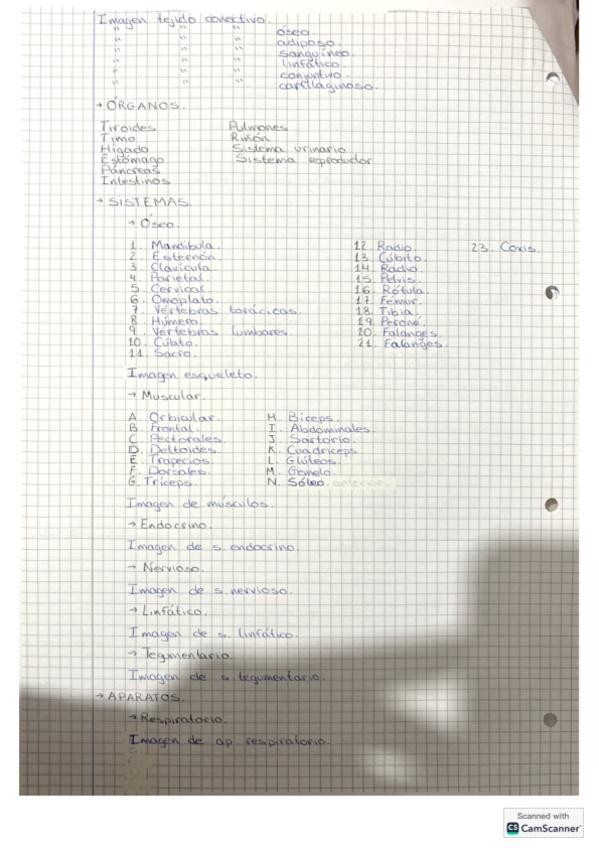 Imagen tejido conectivo.
" " " óseo
" " " adiposo
" " " sanguíneo.
" " " linfático.
" " " conjuntivo.
" " " cartilaginoso.
→ ÓRGANOS.
Tiroides Pulmones
Timo Riñón
Hígado Sistema urinario
Estómago Sistema reproductor
Páncreas
Intestinos
→ SISTEMAS.
→ Óseo.
1. Mandíbula. 12 Radio. 23. Coxis.
2. Esternón. 13 Cúbito.
3. Clavícula. 14 Radio.
4. Parietal. 15 Pelvis.
5. Cervical. 16. Rótula.
6. Omoplato. 17 Fémur.
7. Vértebras torácicas. 18 Tibia.
8. Húmero. 19 Peroné.
9. Vértebras lumbares 20. Falanges.
10. Cúbito. 21. Falanges.
11. Sacro.
Imagen esqueleto.
→ Muscular.
A. Orbicular. H. Biceps.
B. Frontal. I. Abdominales.
C. Pectorales J. Sartorio.
D. Deltoides. K. Cuadriceps
E. Trapecios. L. Glúteos.
F. Dorsales. M. Gemelo.
G. Tríceps. N. Sóleo. anterior.
Imagen de músculos.
→ Endocrino.
Imagen de s. endocrino.
→ Nervioso.
Imagen de s. nervioso.
→ Linfático.
Imagen de s. linfático.
→ Tegumentario.
Imagen de s tegumentario.
→ APARATOS.
→ Respiratorio.
Imagen de ap. respiratorio.
Scanned with
CS CamScanner